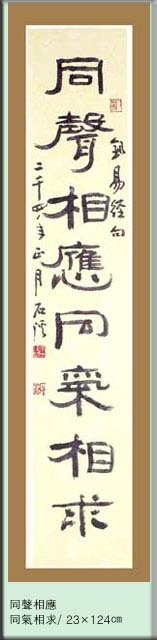 同聲相應同氣相求
錄易經句
二千四年正月石
同聲相應
同氣相求/ 23×124㎝